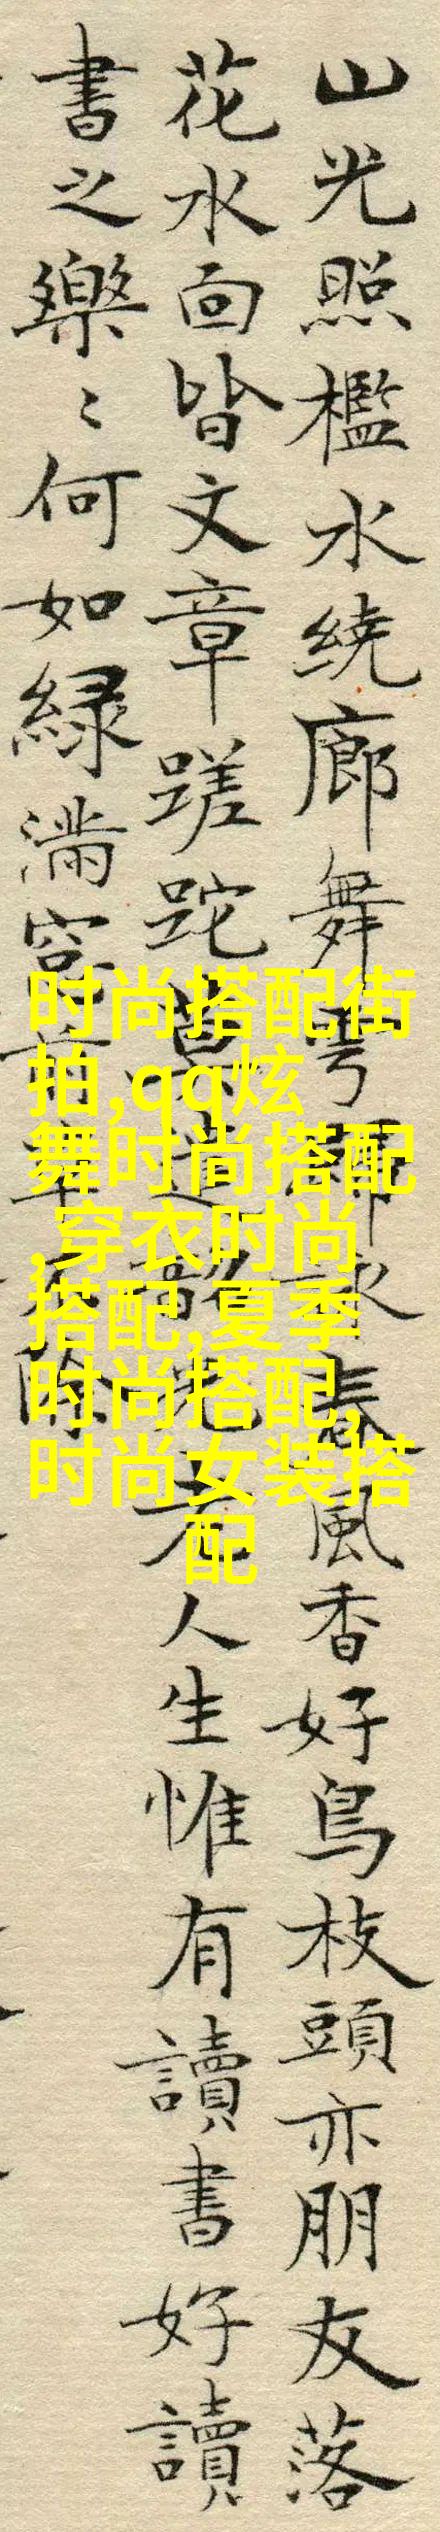 山光照檻水绕廊舞雩歸詠春風香好鳥枝頭亦朋友落
花水面皆文章蹉跎莫遣韶光老人生惟有讀書好讀
書之樂〻何如緑滿窗前草不除
时尚搭配街
拍,qq炫
舞时尚搭配
,穿衣时尚
搭配,夏季
时尚搭配,
时尚女装搭
配